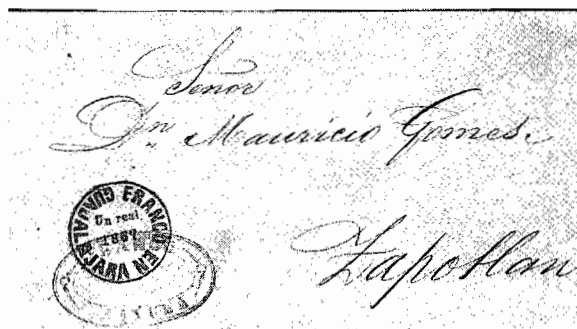 Señor
Dn Mauricio Gomes.
FRANCO EN GUADALAJARA
Un real
1867
Zapotlan